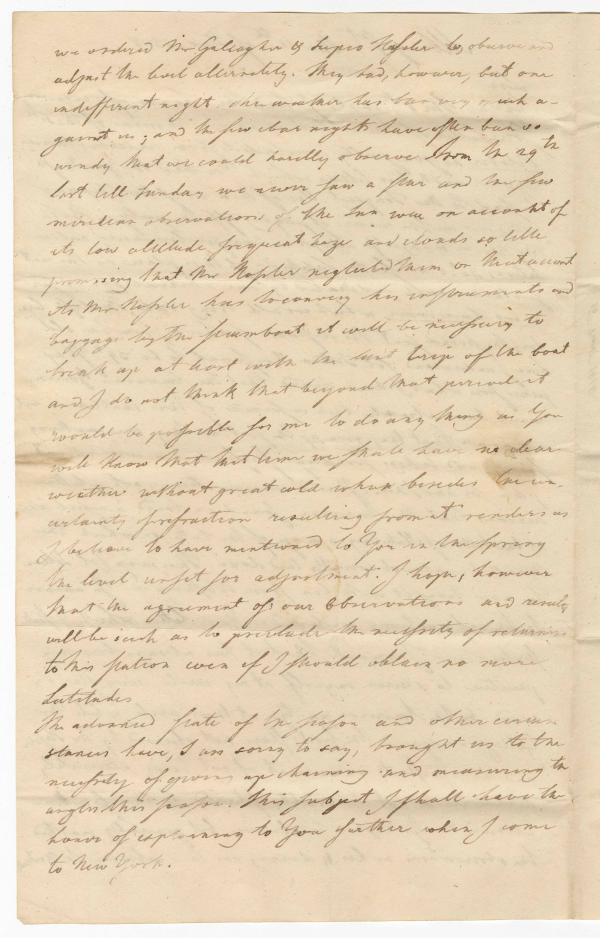 we ordered Mr Gallagher & Hassler to observe and
adjust the level alternately. They had, however, but one
indifferent night. The weather has been very much a-
gainst us; and the few clear nights have often been so
windy that we could hardly observe. From the 29th
last till Sunday we never saw a star and the few
meridian observations of the sun were on account of
its low altitude frequent haze and clouds so little
promising that Mr Hassler neglected them on that account
As Mr Hassler has to convey his instruments and
baggage by the steamboat it will be necessary to
break up at least with the last trip of the boat
and I do not think that beyond that period it
would be possible for me to do any thing as You
well know that that time we shall have no clear
weather without great cold which besides the un-
certainty of refraction resulting from it renders as
I believe to have mentioned to You in the Spring
the level unfit for adjustment. I hope, however
that the agreement of our Observations and results
will be such as to preclude the necessity of returning
to this station even if I should obtain no more
Latitudes
The advanced state of the season and other circum
stances have, I am sorry to say, brought us to the
necessity of giving up chaining and measuring the
angles this season. This subject I shall have the
honor of explaining to You further when I come
to New York.